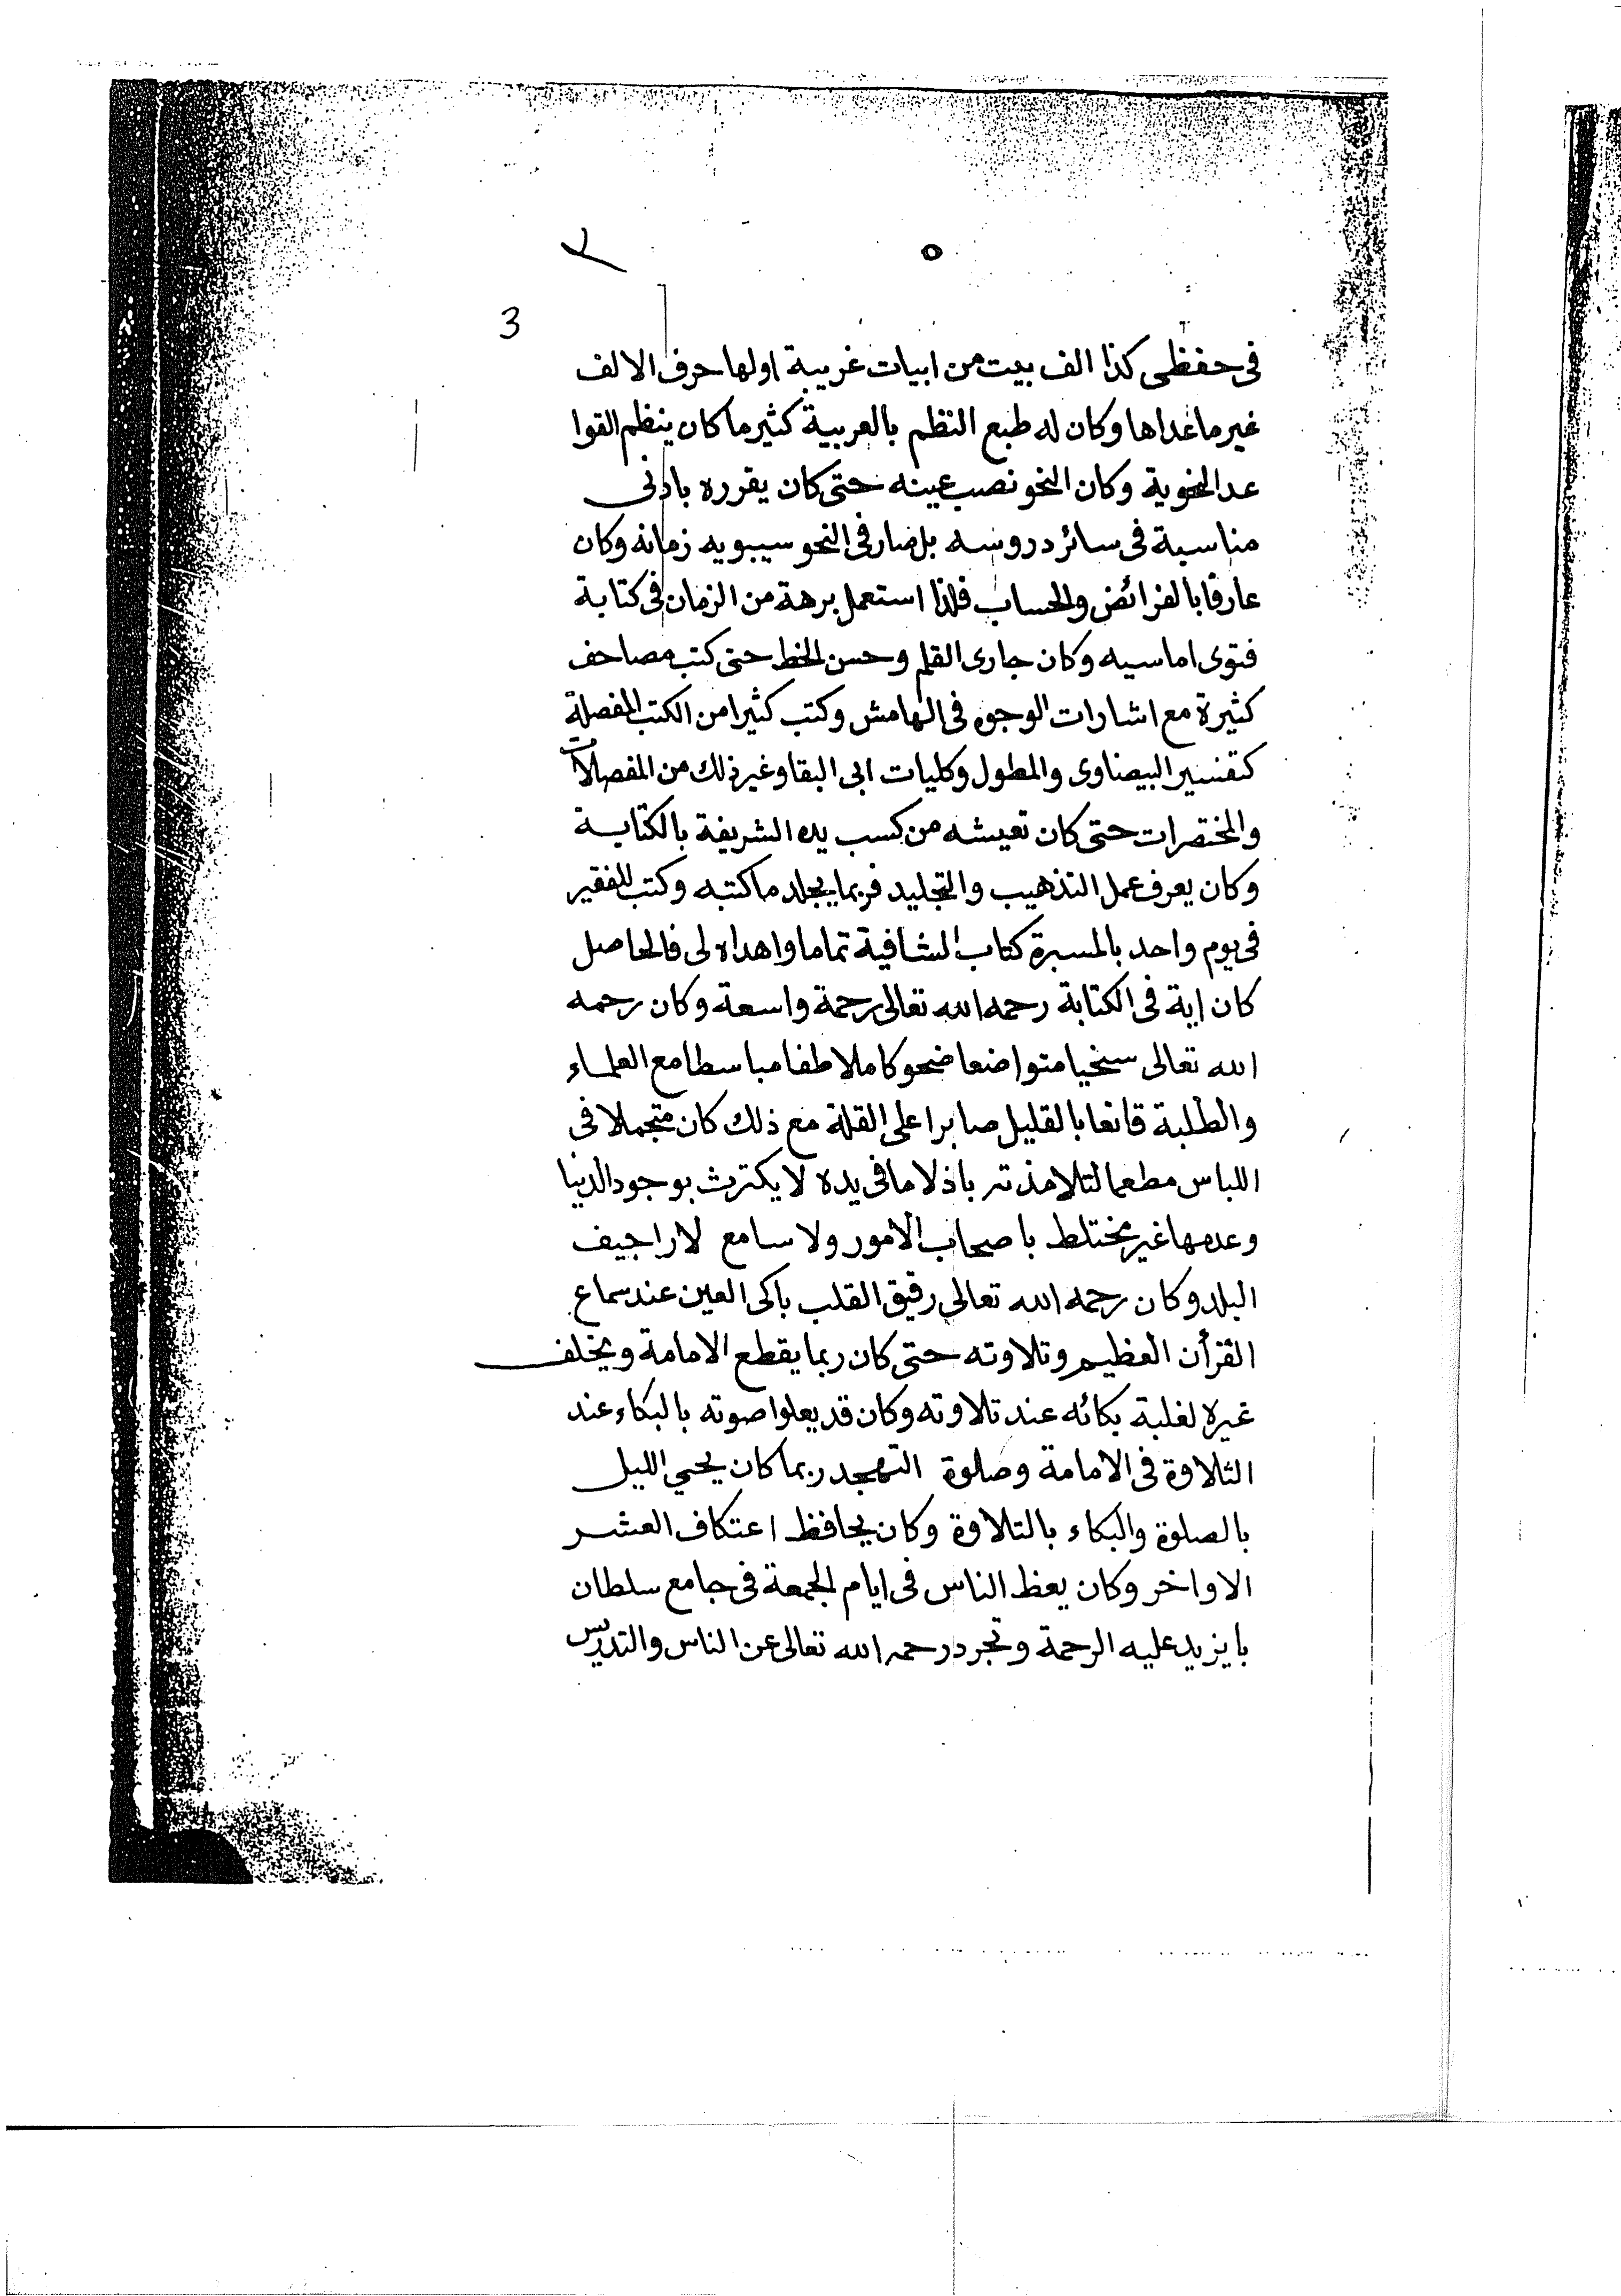 ٥
3
فى حفظى كذا الف بيت من ابيات غريبة اولها حرف الالف
غير ما عداها وكان له طبع النظم بالعربية كثير ما كان ينظم القوا
عد النحوية وكان النحو نصب عينه حتى كان يقرره بادنى
مناسبة فى سائر دروسه بل صار فى النحو سيبويه زمانه وكان
عارفا بالفرائض والحساب فلذا استعمل برهة من الزمان فى كتابة
فتوى اماسيه وكان جارى القلم وحسن الخط حتى كتب مصاحف
كثيرة مع اشارات الوجوه فى الهامش وكتب كثيرا من الكتب المفصلة
كتفسير البيضاوى والمطول وكليات ابى البقا وغير ذلك من المفصلات
والمختصرات حتى كان تعيشه من كسب يده الشريفة بالكتابة
وكان يعرف عمل التذهيب والتجليد فربما يجلد ما كتبه وكتب للفقير
فى يوم واحد بالمسبرة كتاب الشافية تماما واهداه لى فالحاصل
كان اية فى الكتابة رحمه الله تعالى رحمة واسعة وكان رحمه
الله تعالى سخيا متواضعا ضحوكا ملاطفا مباسطا مع العلماء
والطلبة قانعا بالقليل صابرا على القلة مع ذلك كان متجملا فى
اللباس مطعما لتلامذته باذلا ما فى يده لا يكترث بوجود الدنيا
وعدمها غير مختلط باصحاب الامور ولا سامع لاراجيف
البلد وكان رحمه الله تعالى رقيق القلب باكى العين عند سماع
القرأن العظيم وتلاوته حتى كان ربما يقطع الامامة ويخلف
غيره لغلبة بكائه عند تلاوته وكان قد يعلوا صوته بالبكاء عند
التلاوة فى الامامة وصلوة التهجد ربما كان يحيي الليل
بالصلوة والبكاء بالتلاوة وكان يحافظ اعتكاف العشر
الاواخر وكان يعظ الناس فى ايام الجمعة فى جامع سلطان
بايزيد عليه الرحمة وتجرد رحمه الله تعالى عن الناس والتدريس